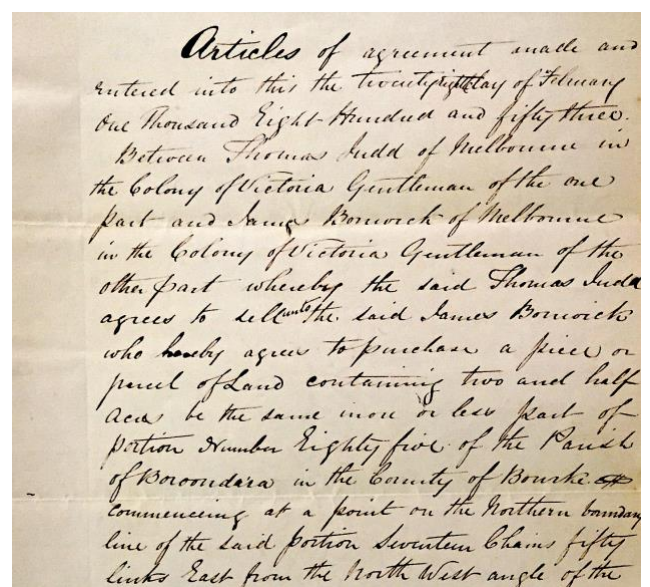 Articles of agreement made and
entered into this the twenty eighth day of February
One Thousand Eight-Hundred and fifty three.
Between Thomas Judd of Melbourne in
the Colony of Victoria Gentleman of the one
part and James Bonwick of Melbourne
in the Colony of Victoria Gentleman of the
other part whereby the said Thomas Judd
agrees to sell unto the said James Bonwick
who hereby agrees to purchase a piece or
parcel of Land containing two and half
Acres be the same more or less part of
portion Number Eighty five of the Parish
of Boroondara in the County of Bourke
commencing at a point on the Northern boundary
line of the said portion Seventeen Chains fifty
links East from the North West angle of the